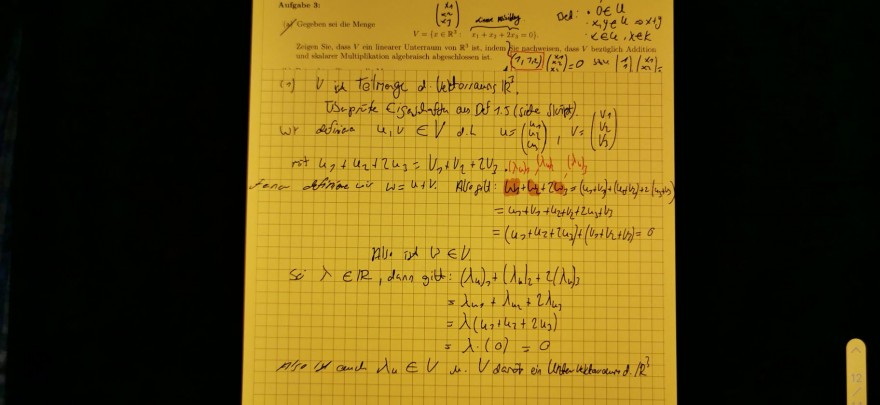 Aufgabe 3:
(a) Gegeben sei die Menge
V = {x ∈ ℝ³ : x₁ + x₂ + 2x₃ = 0}.
Zeigen Sie, dass V ein linearer Unterraum von ℝ³ ist, indem Sie nachweisen, dass V bezüglich Addition
und skalarer Multiplikation algebraisch abgeschlossen ist.
Def: · 0 ∈ U
· x, y ∈ U ⇒ x+y
(1,1,2) (x₁ x₂ x₃) = 0
V ist Teilmenge d. Vektorraums ℝ³.
Überprüfe Eigenschaften aus Def 1.5 (siehe Skript).
Wir definieren u, v ∈ V d.h. u = (u₁ u₂ u₃), v = (v₁ v₂ v₃)
ist u₁ + u₂ + 2u₃ = v₁ + v₂ + 2v₃.
(λu)₁ (λu)₂ (λu)₃
definieren wir w = u + v. Also gilt: w₁ + w₂ + 2w₃ = (u₁+v₁) + (u₂+v₂) + 2(u₃+v₃)
= u₁ + v₁ + u₂ + v₂ + 2u₃ + v₃
= (u₁ + u₂ + 2u₃) + (v₁ + v₂ + v₃) = 0
Also ist w ∈ V.
Sei λ ∈ ℝ, dann gilt: (λu)₁ + (λu)₂ + 2(λu)₃
= λu₁ + λu₂ + 2λu₃
= λ(u₁ + u₂ + 2u₃)
= λ · (0) = 0
Also ist auch λu ∈ V u. V damit ein Untervektorraum d. ℝ³
12